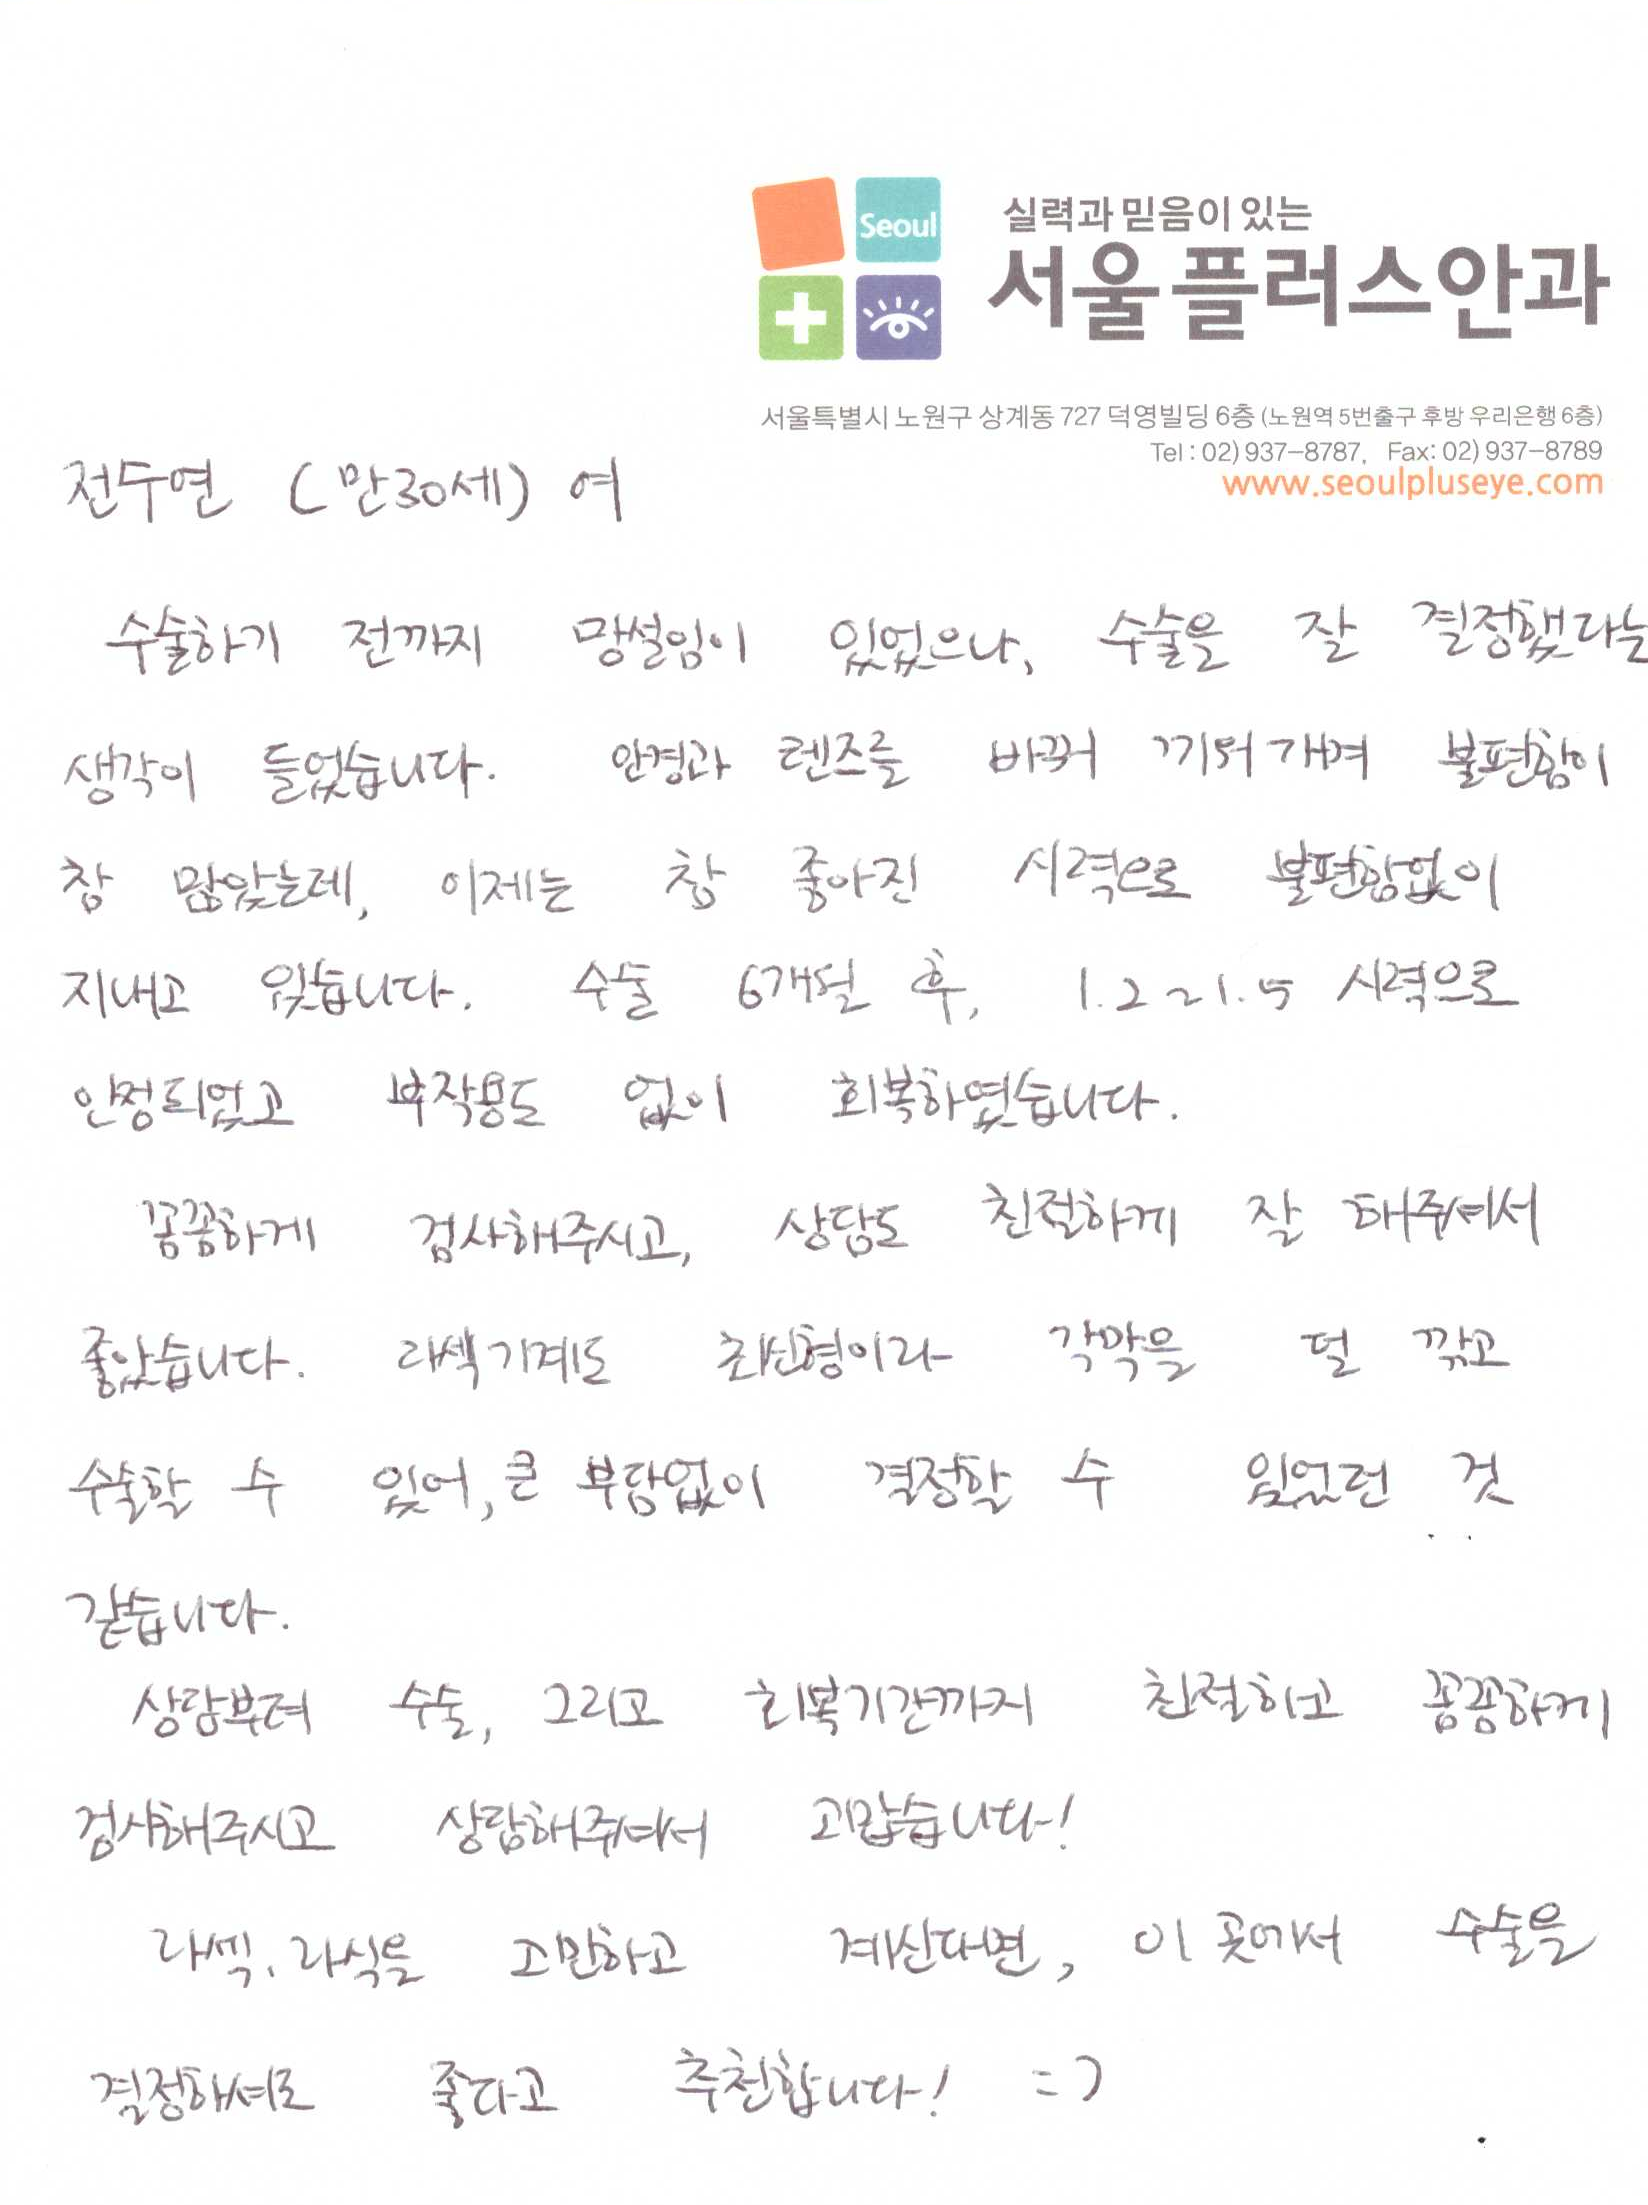 Seoul
실력과 믿음이 있는
서울플러스안과
서울특별시 노원구 상계동 727 덕영빌딩 6층 (노원역 5번출구 후방 우리은행 6층)
Tel : 02) 937-8787, Fax: 02) 937-8789
www.seoulpluseye.com
전두연 (만30세) 여
수술하기 전까지 망설임이 있었으나, 수술을 잘 결정했다는
생각이 들었습니다. 안경과 렌즈를 바꿔 끼워가며 불편함이
참 많았는데, 이제는 참 좋아진 시력으로 불편함없이
지내고 있습니다. 수술 6개월 후, 1.2~1.5 시력으로
안정되었고 부작용도 없이 회복하였습니다.
꼼꼼하게 검사해주시고, 상담도 친절하게 잘 해주셔서
좋았습니다. 라섹기계도 최신형이라 각막을 덜 깎고
수술할 수 있어, 큰 부담없이 결정할 수 있었던 것
같습니다.
상담부터 수술, 그리고 회복기간까지 친절하고 꼼꼼하게
검사해주시고 상담해주셔서 고맙습니다!
라섹, 라식을 고민하고 계신다면, 이 곳에서 수술을
결정하셔도 좋다고 추천합니다! =)